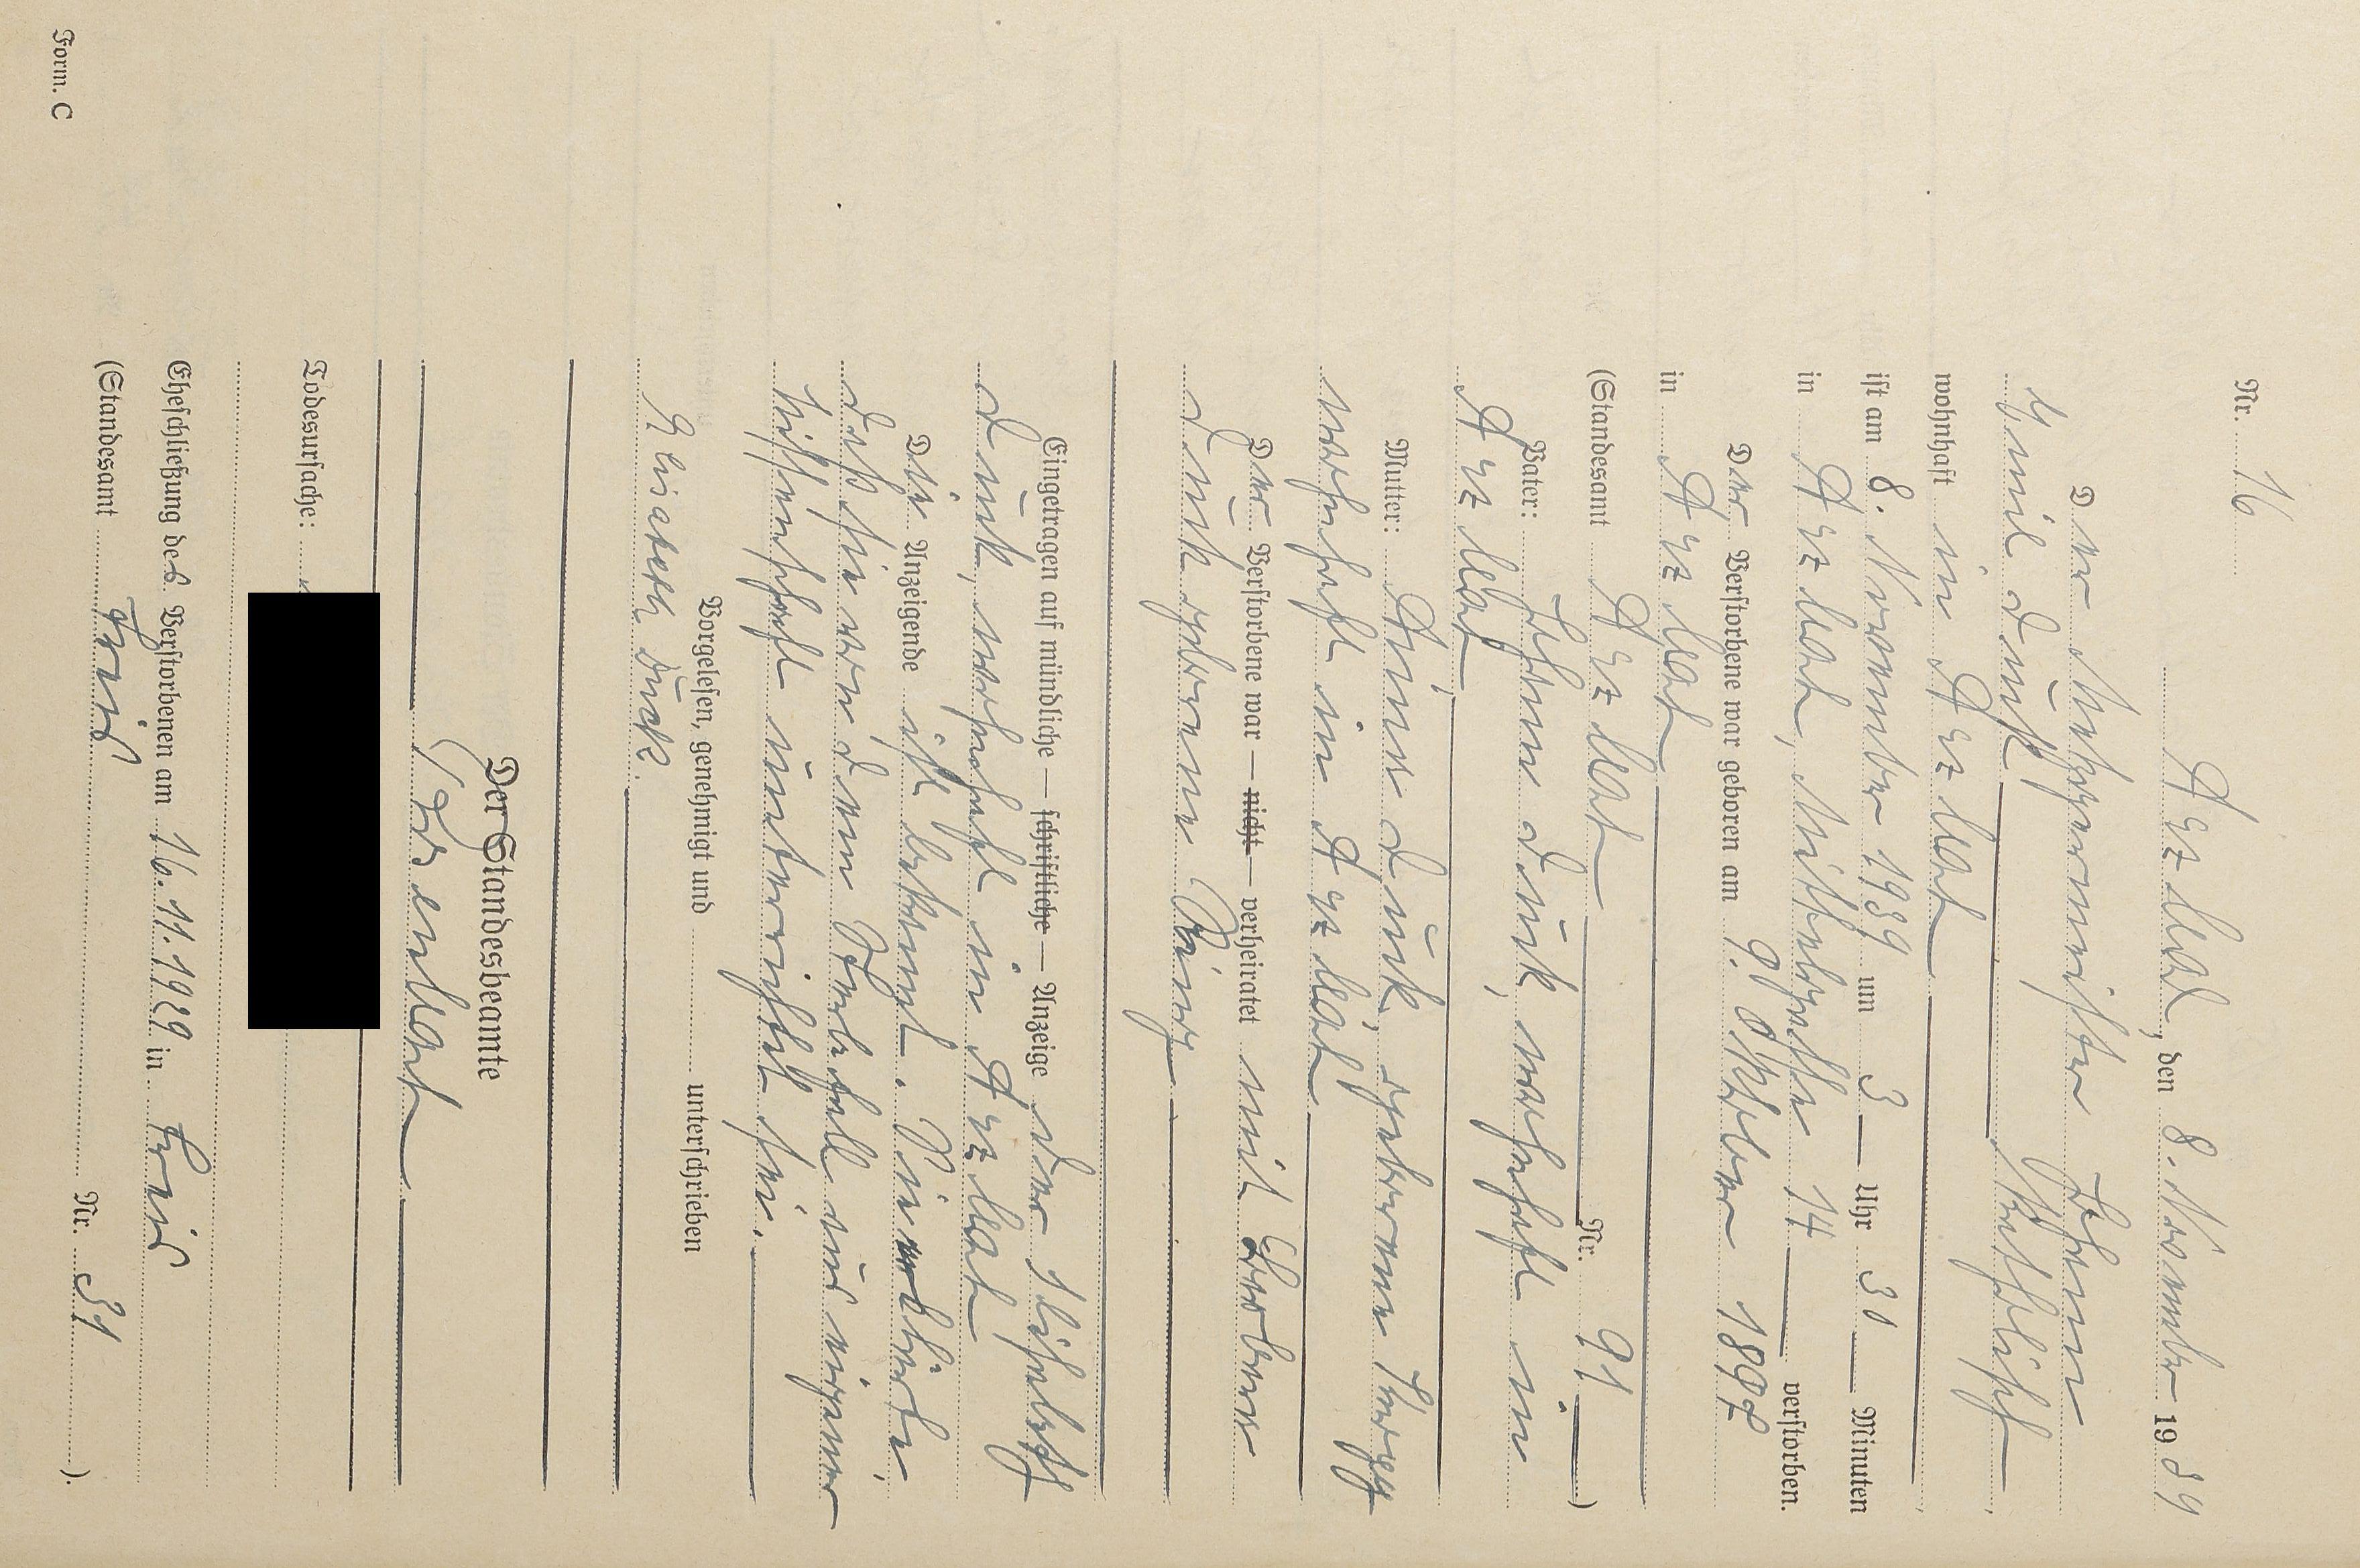 Nr. 16
Arzbach, den 8. November 1939
Der Metzgermeister Johann
Emil Dück, katholisch
wohnhaft in Arzbach
ist am 8. November 1939 um 3 Uhr 30 Minuten
in Arzbach, Mittelstraße 14 verstorben.
Der Verstorbene war geboren am 9. Oktober 1898
in Arzbach
(Standesamt Arzbach Nr. 91)
Vater: Johann Dück, wohnhaft in
Arzbach,
Mutter: Anna Dück, geborene
wohnhaft in Arzbach
Der Verstorbene war — nicht — verheiratet mit Barbara
Dück geborene
Eingetragen auf mündliche — schriftliche — Anzeige der Elisabeth
Dück, wohnhaft in Arzbach
Die Anzeigende ist bekannt. Sie erklärte,
daß sie von dem Sterbefall aus eigener
Wissenschaft unterrichtet sei.
Vorgelesen, genehmigt und unterschrieben
Elisabeth Dück.
Der Standesbeamte
Todesursache:
Eheschließung des Verstorbenen am 16.11.1929 in
(Standesamt Nr. 31).
Form. C